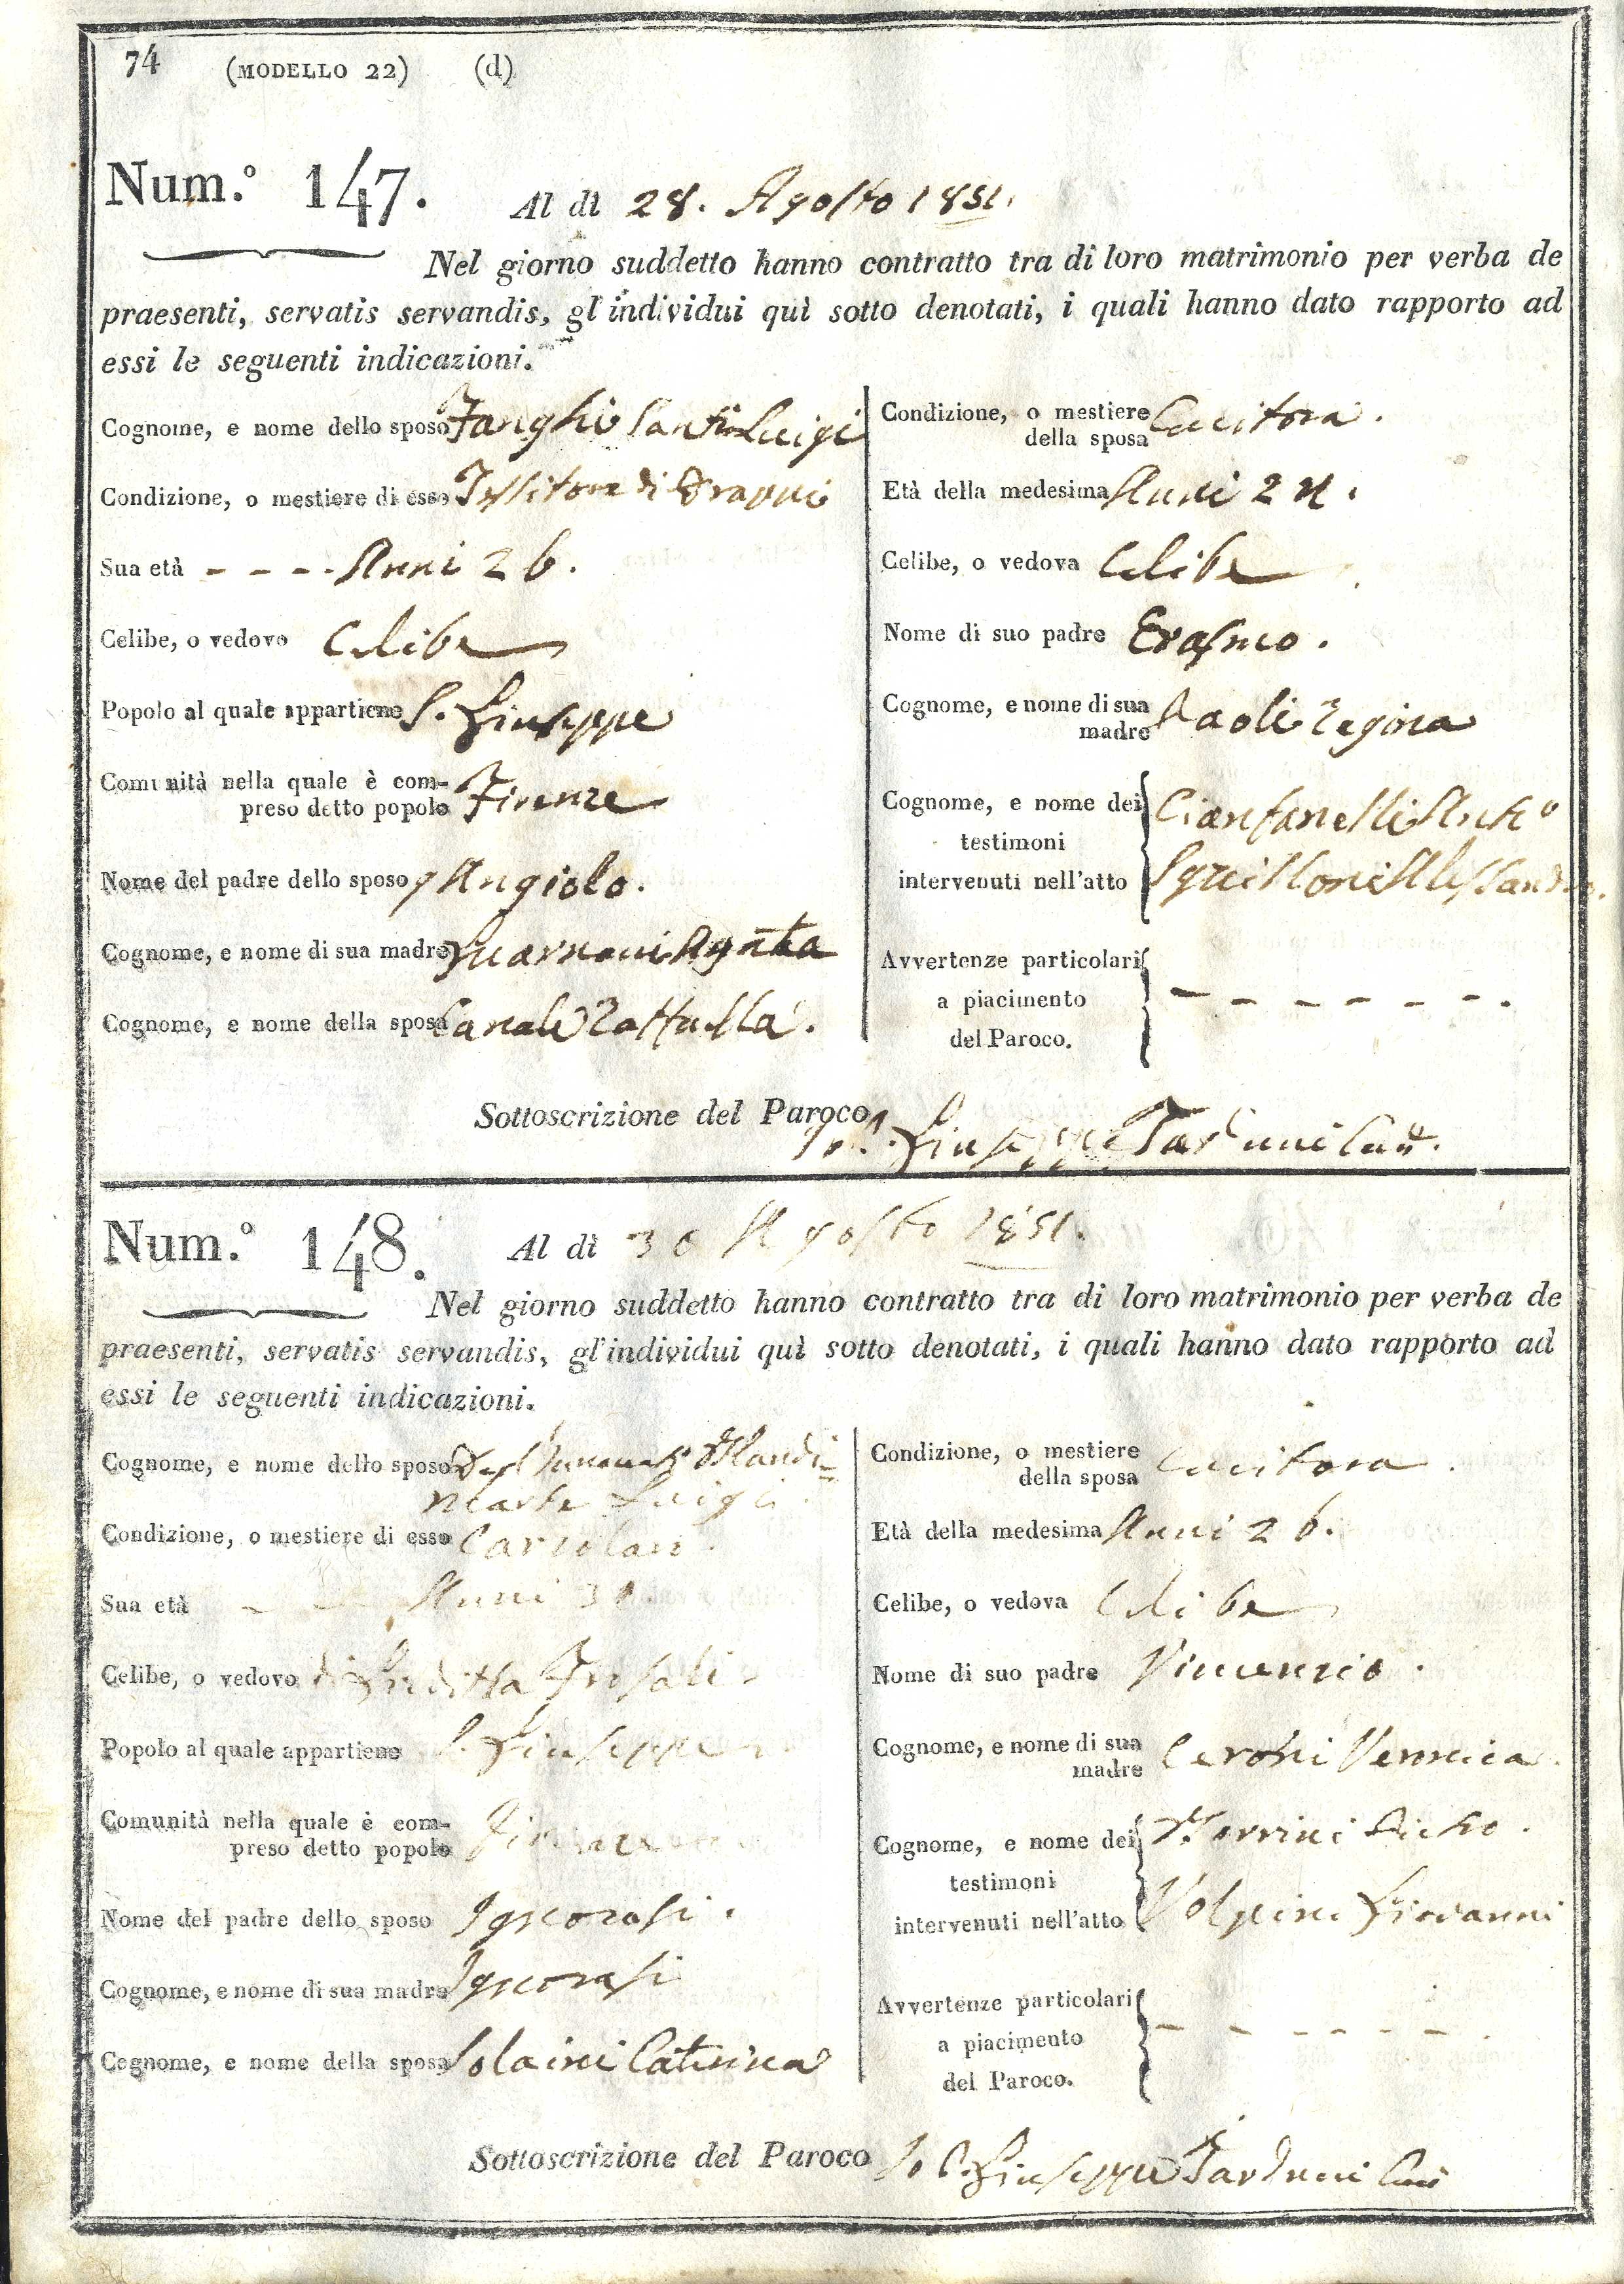 74 (MODELLO 22) (d)
Num.º 147. Al dì 28. Agosto 1851.
Nel giorno suddetto hanno contratto tra di loro matrimonio per verba de
praesenti, servatis servandis, gl'individui quì sotto denotati, i quali hanno dato rapporto ad
essi le seguenti indicazioni.
Cognome, e nome dello sposo Fanghi Santi Luigi
Condizione, o mestiere di esso Tessitore di Drappi
Sua età - - - - Anni 26.
Celibe, o vedovo Celibe
Popolo al quale appartiene S. Giuseppe
Comunità nella quale è com-
preso detto popolo Firenze
Nome del padre dello sposo q Angiolo.
Cognome, e nome di sua madre Agata
Cognome, e nome della sposa Canali Raffaella.
Condizione, o mestiere
della sposa Cucitora.
Età della medesima Anni
Celibe, o vedova Celibe
Nome di suo padre Erasmo.
Cognome, e nome di sua
madre Paoli Regina
Cognome, e nome dei Cianfanelli Antº
testimoni
intervenuti nell'atto Squilloni Alessandro.
Avvertenze particolari
a piacimento - - - - - - -
del Paroco.
Sottoscrizione del Paroco Io P. Giuseppe Tarduini
Num.º 148. Al dì 30 Agosto 1851.
Nel giorno suddetto hanno contratto tra di loro matrimonio per verba de
praesenti, servatis servandis, gl'individui quì sotto denotati, i quali hanno dato rapporto ad
essi le seguenti indicazioni.
Cognome, e nome dello sposo
Luigi
Condizione, o mestiere di esso
Sua età Anni
Celibe, o vedovo di Giuditta
Popolo al quale appartiene S. Giuseppe
Comunità nella quale è com-
preso detto popolo Firenze
Nome del padre dello sposo Ignorasi.
Cognome, e nome di sua madre Ignorasi
Cognome, e nome della sposa Solaini Caterina
Condizione, o mestiere
della sposa Cucitora.
Età della medesima Anni 26.
Celibe, o vedova Celibe
Nome di suo padre Vincenzio.
Cognome, e nome di sua
madre Ceroni Veronica.
Cognome, e nome dei
testimoni
intervenuti nell'atto Volpini Giovanni
Avvertenze particolari
a piacimento - - - - - -
del Paroco.
Sottoscrizione del Paroco Io P. Giuseppe Tarduini